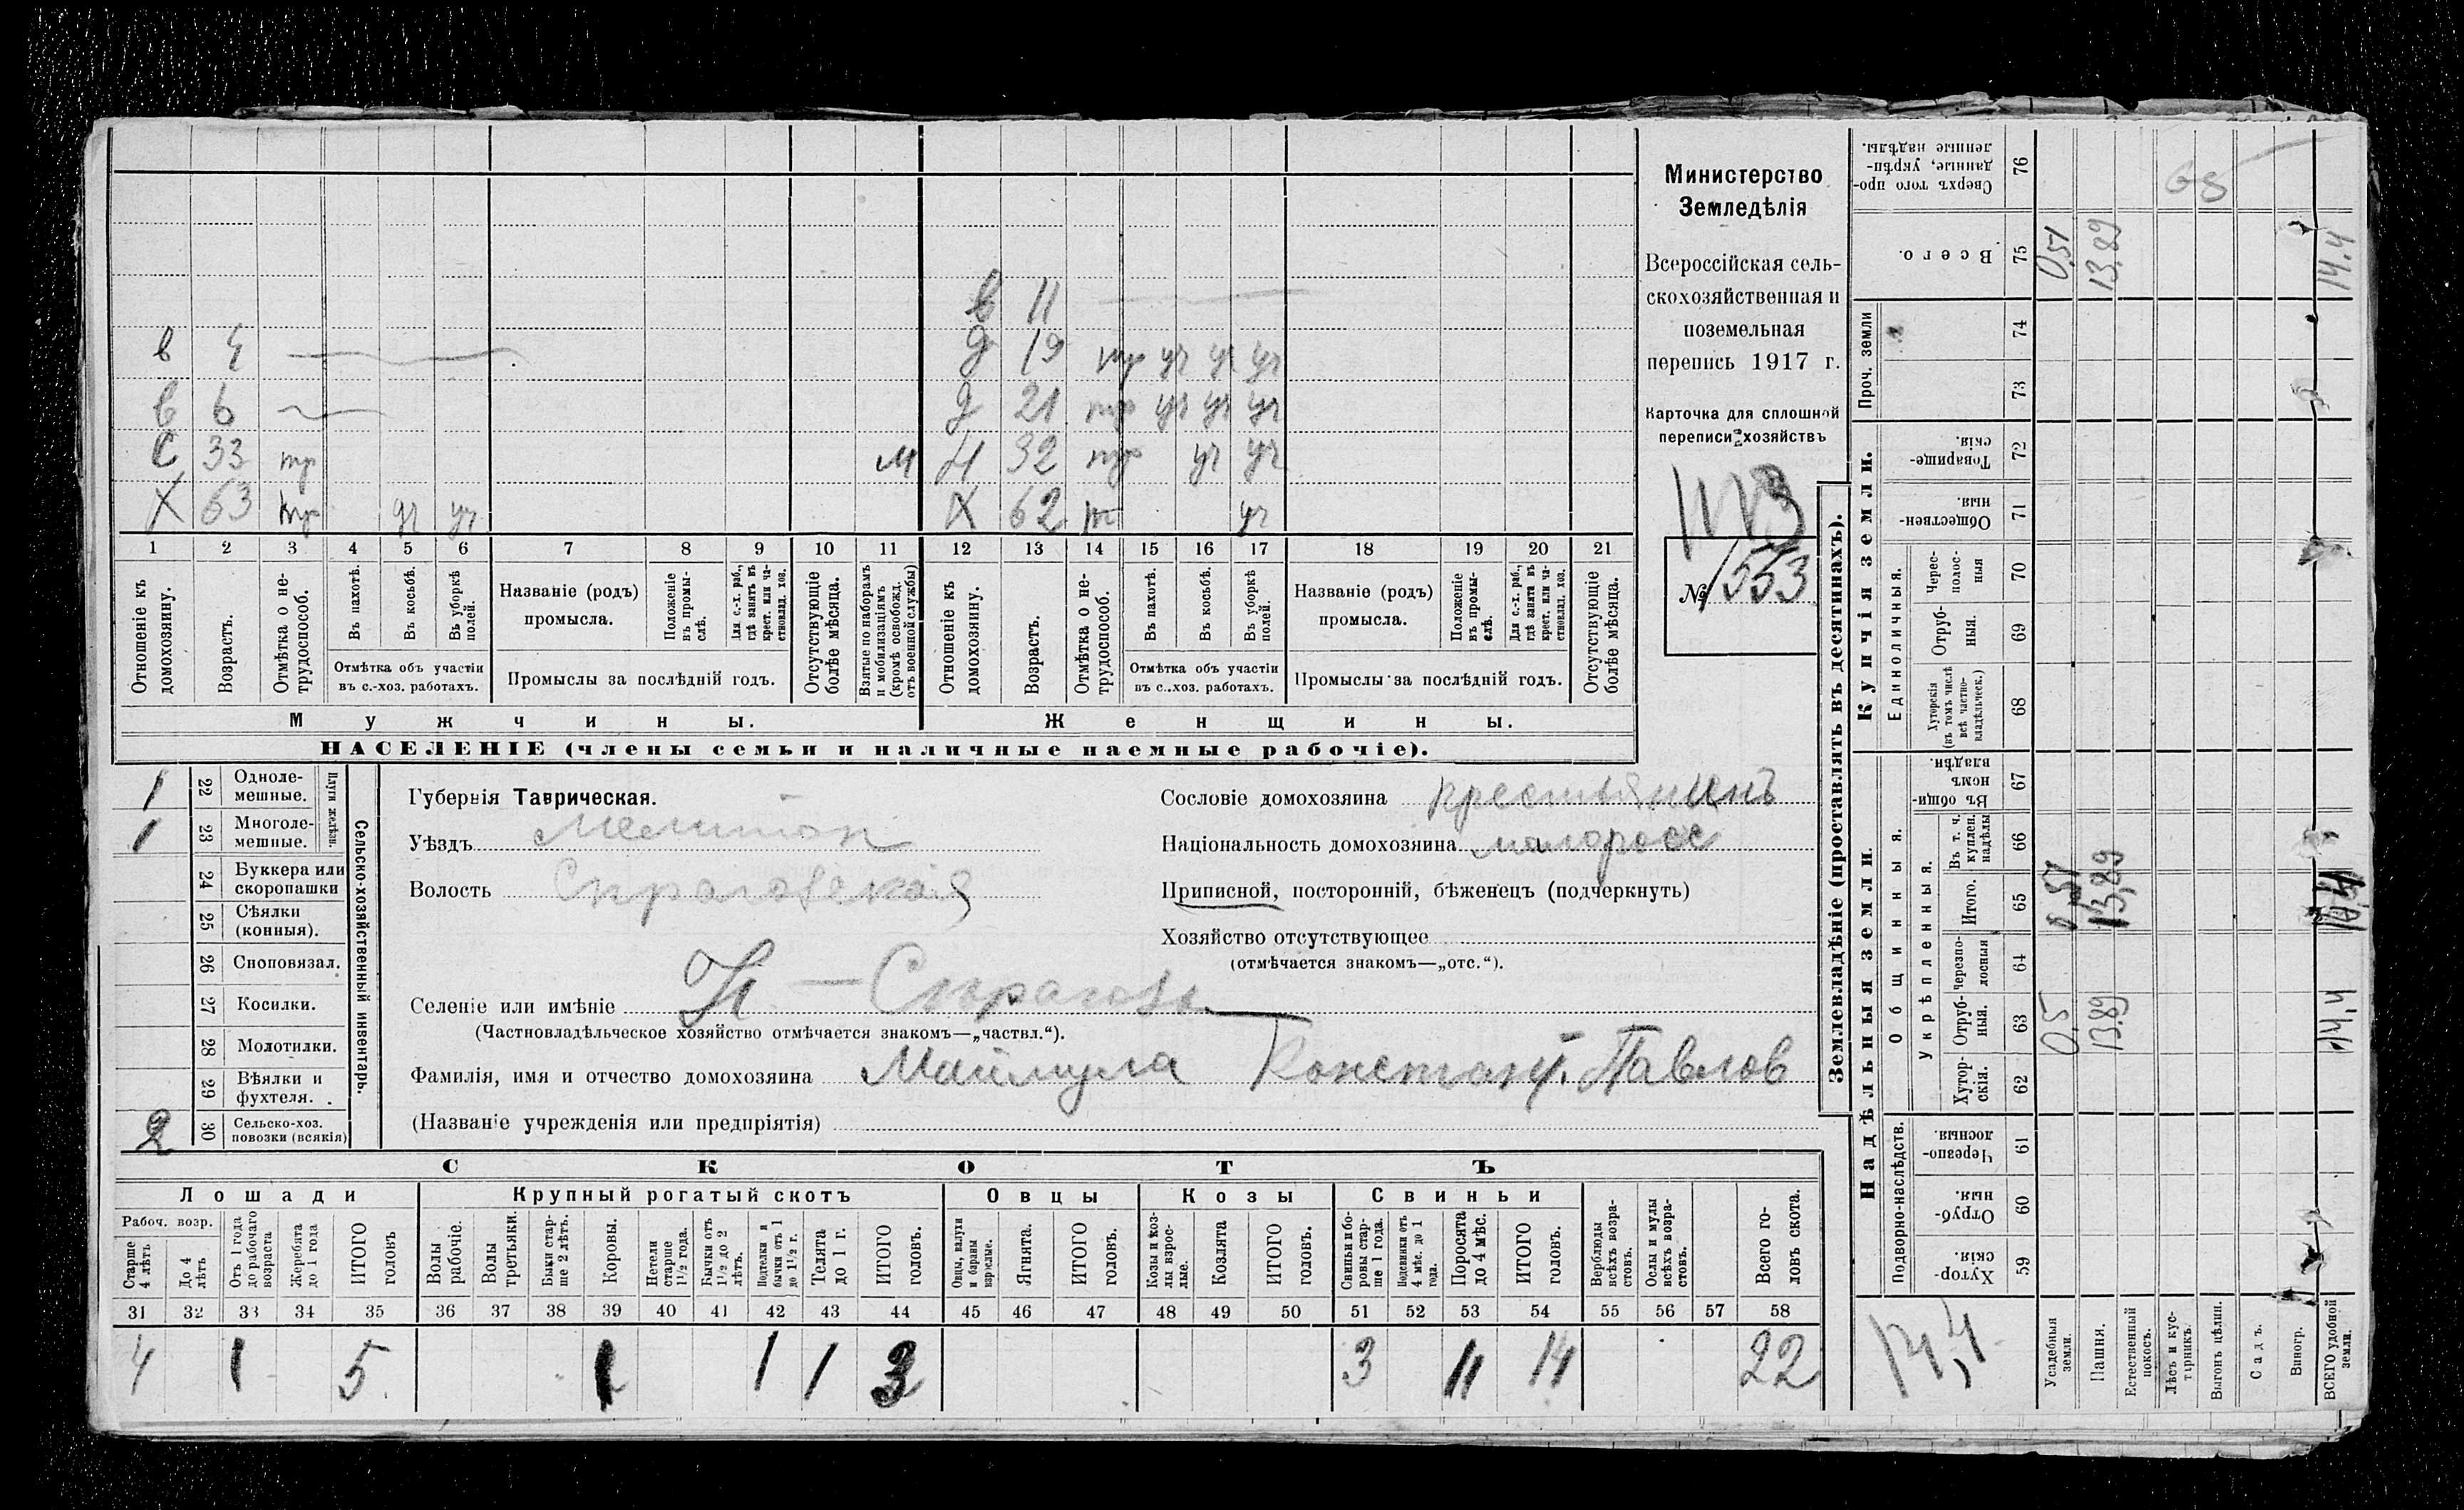 в 11
в 4 д 19 тр уч уч уч
в 6 д 21 тр уч уч уч
с 33 тр м Н 32 тр уч уч
Х 63 тр уч уч Х 62 уч
1 2 3 4 5 6 7 8 9 10 11 12 13 14 15 16 17 18 19 20 21
Отношеніе къ домохозяину.
Возрастъ.
Отмѣтка о не-трудоспособ.
Въ пахотѣ.
Въ косьбѣ.
Въ уборкѣ полей.
Отмѣтка объ участіи
въ с.-хоз. работахъ.
Названіе (родъ)
промысла.
Положеніе въ промы-слѣ.
Для с.-х. раб., гдѣ занятъ въ крест. или ча-стновлад. хоз.
Промыслы за послѣдній годъ.
Отсутствующіе болѣе мѣсяца.
Взятые по наборамъ и мобилизаціямъ (кромѣ освобожд. отъ военной службы)
Отношеніе къ домохозяину.
Возрастъ.
Отмѣтка о не-трудоспособ.
Въ пахотѣ.
Въ косьбѣ.
Въ уборкѣ полей.
Отмѣтка объ участіи
въ с.-хоз. работахъ.
Названіе (родъ)
промысла.
Положеніе въ промы-слѣ.
Для с.-х. раб., гдѣ занята въ крест. или ча-стновлад. хоз.
Промыслы за послѣдній годъ.
Отсутствующіе болѣе мѣсяца.
Мужчины.
Женщины.
НАСЕЛЕНІЕ (члены семьи и наличные наемные рабочіе).
Министерство
Земледѣлія
Всероссійская сель-
скохозяйственная и
поземельная
перепись 1917 г.
Карточка для сплошной
переписи хозяйствъ
1113
№ 1553
1 22 Одноле-мешные.
1 23 Многоле-мешные.
Плуги желѣзн.
24 Буккера или скоропашки
25 Сѣялки (конныя).
26 Сноповязал.
27 Косилки.
28 Молотилки.
29 Вѣялки и фухтеля.
2 30 Сельско-хоз. повозки (всякія)
Сельско-хозяйственный инвентарь.
Губернія Таврическая.
Уѣздъ Мелитоп
Волость
Селеніе или имѣніе Н.-
(Частновладѣльческое хозяйство отмѣчается знакомъ—„частвл.“).
Фамилія, имя и отчество домохозяина Маймула Констант. Павлов
(Названіе учрежденія или предпріятія)
Сословіе домохозяина крестьянинъ
Національность домохозяина малоросс
Приписной, посторонній, бѣженецъ (подчеркнуть)
Хозяйство отсутствующее
(отмѣчается знакомъ—„отс.“).
СКОТЪ
Лошади
Рабоч. возр.
Старше 4 лѣтъ
До 4 лѣтъ
Отъ 1 года до рабочаго возраста
Жеребята до 1 года
ИТОГО головъ
Крупный рогатый скотъ
Волы рабочіе.
Волы третьяки.
Быки стар-ше 2 лѣтъ.
Коровы.
Нетели старше 1½ года.
Бычки отъ 1½ до 2 лѣтъ.
Подтелки и бычки отъ 1 до 1½ г.
Телята до 1 г.
ИТОГО головъ.
Овцы
Овцы, валухи и бараны взрослые.
Ягнята.
ИТОГО головъ.
Козы
Козы и коз-лы взрос-лые.
Козлята
ИТОГО головъ.
Свиньи
Свиньи и бо-ровы стар-ше 1 года.
Подсвинки отъ 4 мѣс. до 1 года.
Поросята до 4 мѣс.
ИТОГО головъ.
Верблюды всѣхъ возра-стовъ.
Ослы и мулы всѣхъ возра-стовъ.
Всего го-ловъ скота.
31 32 33 34 35 36 37 38 39 40 41 42 43 44 45 46 47 48 49 50 51 52 53 54 55 56 57 58
4 1 5 1 1 1 3 3 11 14 22
Землевладѣніе (проставлять въ десятинахъ).
Надѣльныя земли.
Подворно-наслѣдств.
Хутор-скія. 59
Отруб-ныя. 60
Черезпо-лосныя 61
Общинныя.
Укрѣпленныя.
Хутор-скія. 62
Отруб-ныя. 63 0,5 13.89 14,4
Черезпо-лосныя 64
Итого. 65 0,51 13,89 14,4
Въ т. ч. куплен. надѣлы 66
Въ общи-номъ владѣн. 67
Купчія земли.
Единоличныя.
Хуторскія (въ томъ числѣ всѣ частно-владѣльческ.) 68
Отруб-ныя. 69
Черес-полос-ныя 70
Обществен-ныя. 71
Товарище-скія. 72
Проч. земли
73
74
Всего. 75 0,51 13,89 14.4
Сверхъ того про-данные, укрѣп-ленные надѣлы. 76
14,4
Усадебныя земли.
Пашня.
Естественный покосъ.
Лѣсъ и кус-тарникъ.
Выгонъ цѣлин.
Садъ.
Виногр.
ВСЕГО удобной земли.